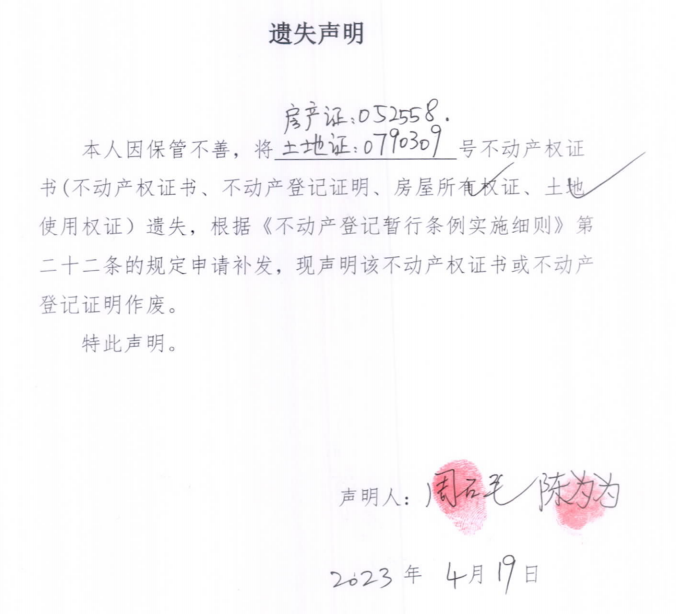 遗失声明
房产证:052558.
本人因保管不善，将土地证:0790309号不动产权证
书(不动产权证书、不动产登记证明、房屋所有权证、土地
使用权证）遗失，根据《不动产登记暂行条例实施细则》第
二十二条的规定申请补发，现声明该不动产权证书或不动产
登记证明作废。
特此声明。
声明人：周石毛 陈为为
2023年 4月19日